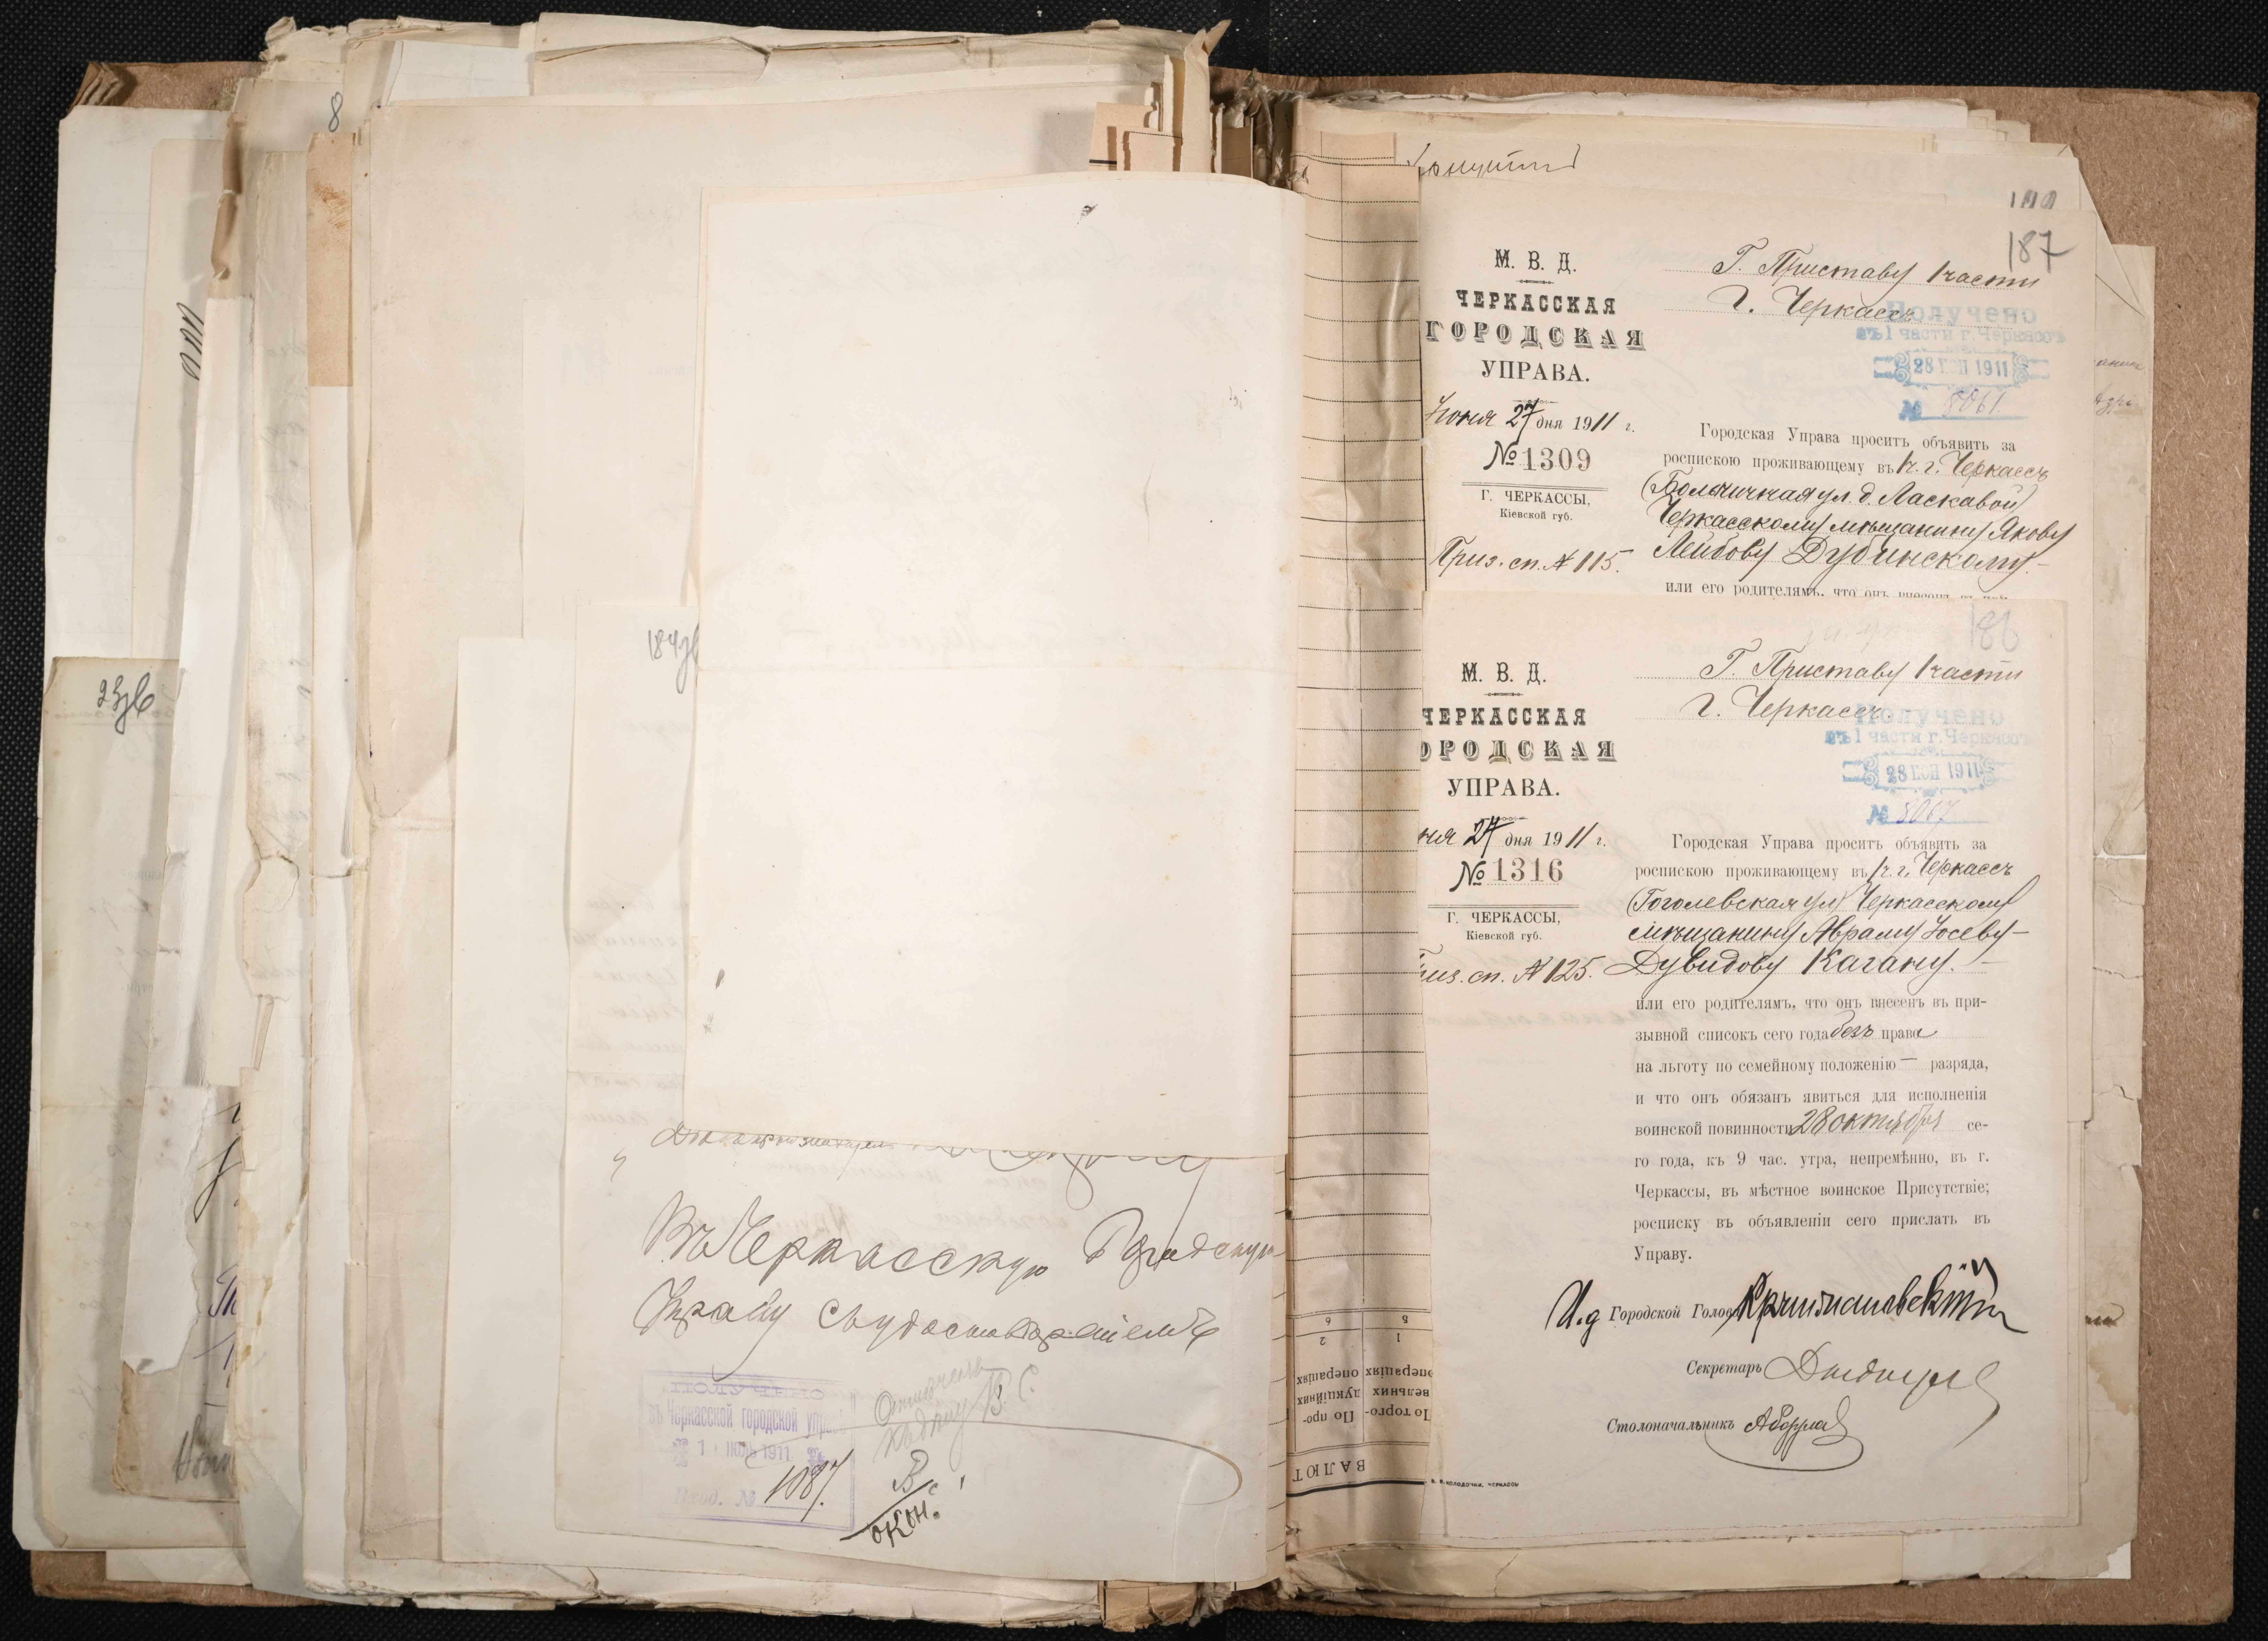 8
23зв
184зв
Въ Черкасскую Городскую
Управу съ удостовѣреніемъ
ПОЛУЧЕНО
въ Черкасской городской управѣ
1 ІЮЛЬ 1911
Вход. № 1087.
187
М. В. Д.
ЧЕРКАССКАЯ
ГОРОДСКАЯ
УПРАВА.
Іюня 27 дня 1911 г.
№ 1309
Г. ЧЕРКАССЫ,
Кіевской губ.
Приз. сп. № 115.
Г. Приставу 1 части
г. Черкассъ
Получено
въ 1 части г. Черкассъ
28 1911
№ 5061
Городская Управа проситъ объявить за
роспискою проживающему въ 1 ч. г. Черкассъ
(Больничная ул. д. Ласкавой)
Черкасскому мѣщанину Якову
Лейбову Дубинскому.—
или его родителямъ, что онъ внесенъ въ при-
186
М. В. Д.
ЧЕРКАССКАЯ
ОРОДСКАЯ
УПРАВА.
ня 27 дня 1911 г.
№ 1316
Г. ЧЕРКАССЫ,
Кіевской губ.
из. сп. № 125.
Г. Приставу 1 части
г. Черкассъ
Получено
въ 1 части г. Черкассъ
28 1911
№ 5067
Городская Управа проситъ объявить за
роспискою проживающему въ 1 ч. г. Черкассъ
(Гоголевская ул) Черкасскому
мѣщанину Авраму Іосеву—
Дувидову Кагану.—
или его родителямъ, что онъ внесенъ въ при-
зывной списокъ сего года безъ права
на льготу по семейному положенію — разряда,
и что онъ обязанъ явиться для исполненія
воинской повинности 28 октября се-
го года, къ 9 час. утра, непремѣнно, въ г.
Черкассы, въ мѣстное воинское Присутствіе;
росписку въ объявленіи сего прислать въ
Управу.
И.д Городской Голова
Секретарь
Столоначальникъ
ВАЛЮТ
По торго-
вельних
операціях
По про-
дукційних
операціях
1
2
5
6